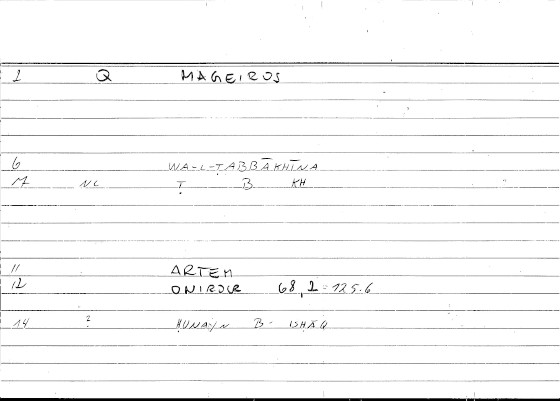 1 Q MAGEIROS
6 WA-L-ṬABBĀKHĪNA
7 NC Ṭ B KH
11 ARTEM
12 ONIROCR 68,2=125.6
14 ? ḤUNAYN B- ISḤĀQ